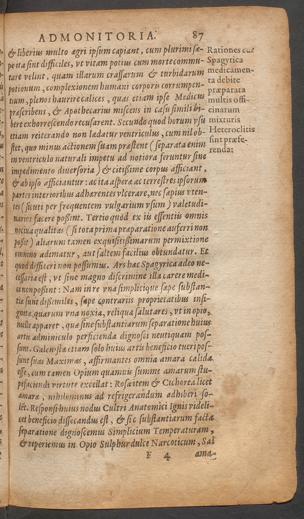 ADMONITORIA. 87
& liberius multo agri ipsum capiant, cum plurimi sæ-
pe ita sint difficiles, vt vitam potius cum morte commu-
tare velint, quam illarum crassarum & turbidarum
potionum, complexionem humani corporis corrumpen-
tum, plenos haurire calices, quas etiam ipse Medicus
præscribens, & Apothecarius miscens in casu simili bi-
bere exhorrescendo recusarent. Secundo quod horum vsu
etiam reiterando non ladatur ventriculus, cum nil ob-
stet, quo minus actionem suam præstent (separata enim
in ventriculo naturali impetu ad notiora feruntur sine
impedimento diuersoria) & citissime corpus afficiant,
& ab ipso afficiantur: ac ita aspera ac terrestres ipsorum
partes interioribus adhærentes vlcerare, nec sapius vten-
tes (sicuti per frequentem vulgarium vsum) valetudi-
narios facere possint. Tertio quod ex iis essentiis omnis
nociua qualitas (si tota prima præparatione auferri non
posset) aliarum tamen exquisitissimarum permixtione
omnino adematur, aut saltem facilius obtundatur. Et
quod difficeri non possumus. Ars hæc Spagyrica adeo ne-
cessaria est, vt sine magno discrimine illa carere medi-
cum possint: Nam in re vna simplicique sæpe substan-
tiæ sunt dissimiles, sæpe contrariis proprietatibus insi-
gnitæ, quarum vna noxia, reliqua salutares, vt in opio,
nulla apparet, qua sine substantiarum separatione huius
artis adminiculo perficienda dignosci neutiquam pos-
sunt. Galenistæ etiam solo huius artis beneficio tueri pos-
sunt suas Maximas, affirmantes omnia amara calida
esse, cum tamen Opium quamuis summe amarum stu-
pefaciendi virtute excellat: Rosa item & Cichorea licet
amara, nihilominus ad refrigerandum adhiberi so-
let. Respon: huius nodus Cultri Anatomici Ignis videli-
cet beneficio dissecandus est, & sic substantiarum facta
separatione dignoscemus Simplicium Temperaturam,
& reperiemus in Opio Sulphur dulce Narcoticum, Sal
F 4 ama-
Rationes cur
Spagyrica
medicamen-
ta debite
præparata
multis offi-
cinarum
mixturis
Heteroclitis
sint præfe-
renda: